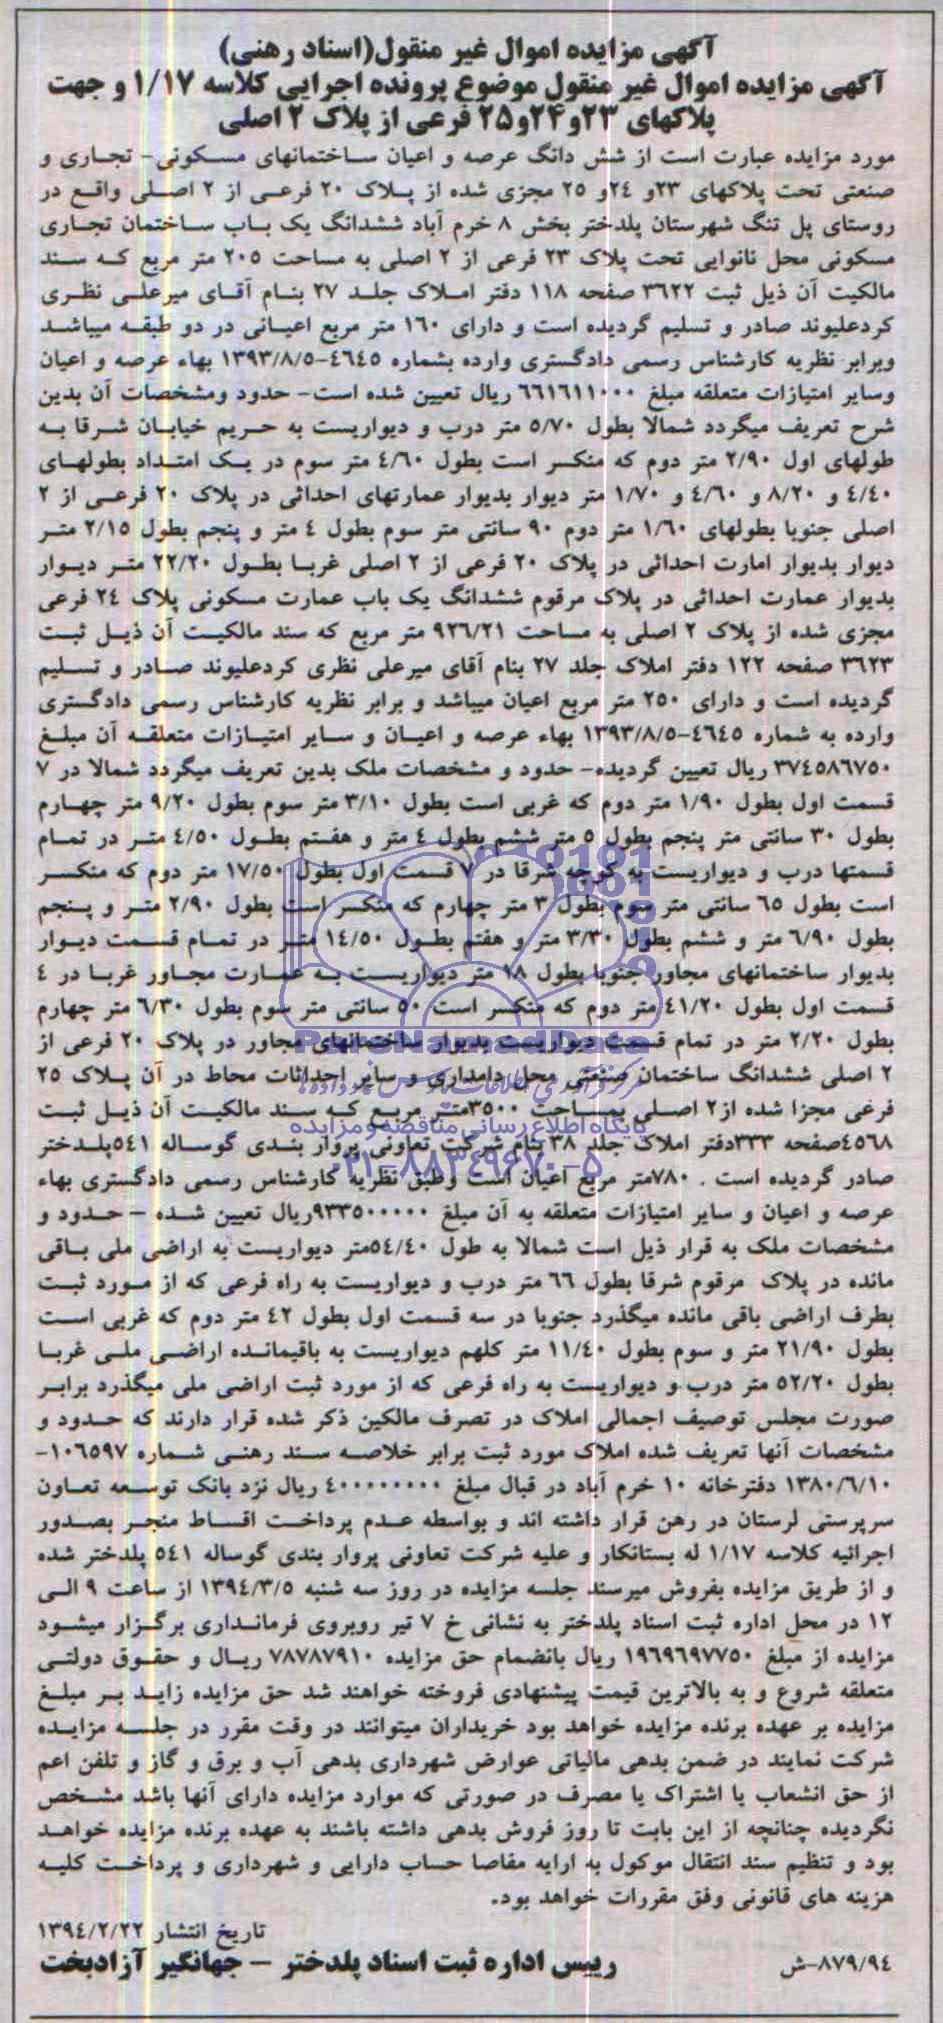 آگهی مزایده اموال غیر منقول(اسناد رهنی)
آگهی مزایده اموال غیر منقول موضوع پرونده اجرایی کلاسه ۱/۱۷ و جهت
پلاکهای ۲۳و۲۴و۲۵ فرعی از پلاک ۲ اصلی
مورد مزایده عبارت است از شش دانگ عرصه و اعیان ساختمانهای مسکونی- تجاری و
صنعتی تحت پلاکهای ۲۳و ۲۴و ۲۵ مجزی شده از پلاک ۲۰ فرعی از ۲ اصلی واقع در
روستای پل تنگ شهرستان پلدختر بخش ۸ خرم آباد ششدانگ یک باب ساختمان تجاری
مسکونی محل نانوایی تحت پلاک ۲۳ فرعی از ۲ اصلی به مساحت ۲۰۵ متر مربع که سند
مالکیت آن ذیل ثبت ۳۶۲۲ صفحه ۱۱۸ دفتر املاک جلد ۲۷ بنام آقای میرعلی نظری
کردعلیوند صادر و تسلیم گردیده است و دارای ۱۶۰ متر مربع اعیانی در دو طبقه میباشد
وبرابر نظریه کارشناس رسمی دادگستری وارده بشماره ۴۶۴۵-۱۳۹۳/۸/۵ بهاء عرصه و اعیان
وسایر امتیازات متعلقه مبلغ ۶۶۱۶۱۱۰۰۰ ریال تعیین شده است- حدود ومشخصات آن بدین
شرح تعریف میگردد شمالا بطول ۵/۷۰ متر درب و دیواریست به حریم خیابان شرقا به
طولهای اول ۲/۹۰ متر دوم که منکسر است بطول ۴/۶۰ متر سوم در یک امتداد بطولهای
۴/۴۰ و ۸/۲۰ و ۴/۶۰ و ۱/۷۰ متر دیوار بدیوار عمارتهای احداثی در پلاک ۲۰ فرعی از ۲
اصلی جنوبا بطولهای ۱/۶۰ متر دوم ۹۰ سانتی متر سوم بطول ۴ متر و پنجم بطول ۲/۱۵ متر
دیوار بدیوار امارت احداثی در پلاک ۲۰ فرعی از ۲ اصلی غربا بطول ۲۲/۲۰ متر دیوار
بدیوار عمارت احداثی در پلاک مرقوم ششدانگ یک باب عمارت مسکونی پلاک ۲۴ فرعی
مجزی شده از پلاک ۲ اصلی به مساحت ۹۲۶/۲۱ متر مربع که سند مالکیت آن ذیل ثبت
۳۶۲۳ صفحه ۱۲۲ دفتر املاک جلد ۲۷ بنام آقای میرعلی نظری کردعلیوند صادر و تسلیم
گردیده است و دارای ۲۵۰ متر مربع اعیان میباشد و برابر نظریه کارشناس رسمی دادگستری
وارده به شماره ۴۶۴۵-۱۳۹۳/۸/۵ بهاء عرصه و اعیان و سایر امتیازات متعلقه آن مبلغ
۳۷۴۵۸۶۷۵۰ ریال تعیین گردیده- حدود و مشخصات ملک بدین تعریف میگردد شمالا در ۷
قسمت اول بطول ۱/۹۰ متر دوم که غربی است بطول ۳/۱۰ متر سوم بطول ۹/۲۰ متر چهارم
بطول ۳۰ سانتی متر پنجم بطول ۵ متر ششم بطول ۴ متر و هفتم بطول ۴/۵۰ متر در تمام
قسمتها درب و دیواریست به کوچه شرقا در ۷ قسمت اول بطول ۱۷/۵۰ متر دوم که منکسر
است بطول ۶۵ سانتی متر سوم بطول ۳ متر چهارم که منکسر است بطول ۲/۹۰ متر و پنجم
بطول ۶/۹۰ متر و ششم بطول ۳/۳۰ متر و هفتم بطول ۱۴/۵۰ متر در تمام قسمت دیوار
بدیوار ساختمانهای مجاور جنوبا بطول ۱۸ متر دیواریست به عمارت مجاور غربا در ۴
قسمت اول بطول ۴۱/۲۰ متر دوم که منکسر است ۵۰ سانتی متر سوم بطول ۶/۳۰ متر چهارم
بطول ۲/۲۰ متر در تمام قسمت دیواریست بدیوار ساختمانهای مجاور در پلاک ۲۰ فرعی از
ParsNamadData
۲ اصلی ششدانگ ساختمان صنعتی محل دامداری و سایر احداثات محاط در آن پلاک ۲۵
فرعی مجزا شده از۲ اصلی بمساحت ۳۵۰۰متر مربع که سند مالکیت آن ذیل ثبت
پایگاه اطلاع رسانی مناقصه و مزایده
۴۵۶۸صفحه ۳۳۳دفتر املاک جلد ۳۸ بنام شرکت تعاونی پروار بندی گوساله ۵۴۱پلدختر
۰۲۱-۸۸۳۴۹۶۷۰-۵
صادر گردیده است . ۷۸۰متر مربع اعیان است وطبق نظریه کارشناس رسمی دادگستری بهاء
عرصه و اعیان و سایر امتیازات متعلقه به آن مبلغ ۹۳۳۵۰۰۰۰۰ریال تعیین شده - حدود و
مشخصات ملک به قرار ذیل است شمالا به طول ۵۴/۴۰متر دیواریست به اراضی ملی باقی
مانده در پلاک مرقوم شرقا بطول ۶۶ متر درب و دیواریست به راه فرعی که از مورد ثبت
بطرف اراضی باقی مانده میگذرد جنوبا در سه قسمت اول بطول ۴۲ متر دوم که غربی است
بطول ۲۱/۹۰ متر و سوم بطول ۱۱/۴۰ متر کلهم دیواریست به باقیمانده اراضی ملی غربا
بطول ۵۲/۲۰ متر درب و دیواریست به راه فرعی که از مورد ثبت اراضی ملی میگذرد برابر
صورت مجلس توصیف اجمالی املاک در تصرف مالکین ذکر شده قرار دارند که حدود و
مشخصات آنها تعریف شده املاک مورد ثبت برابر خلاصه سند رهنی شماره ۱۰۶۵۹۷-
۱۳۸۰/۶/۱۰ دفترخانه ۱۰ خرم آباد در قبال مبلغ ۴۰۰۰۰۰۰۰۰ ریال نزد بانک توسعه تعاون
سرپرستی لرستان در رهن قرار داشته اند و بواسطه عدم پرداخت اقساط منجر بصدور
اجرائیه کلاسه ۱/۱۷ له بستانکار و علیه شرکت تعاونی پروار بندی گوساله ۵۴۱ پلدختر شده
و از طریق مزایده بفروش میرسند جلسه مزایده در روز سه شنبه ۱۳۹۴/۳/۵ از ساعت ۹ الی
۱۲ در محل اداره ثبت اسناد پلدختر به نشانی خ ۷ تیر روبروی فرمانداری برگزار میشود
مزایده از مبلغ ۱۹۶۹۶۹۷۷۵۰ ریال بانضمام حق مزایده ۷۸۷۸۷۹۱۰ ریال و حقوق دولتی
متعلقه شروع و به بالاترین قیمت پیشنهادی فروخته خواهند شد حق مزایده زاید بر مبلغ
مزایده بر عهده برنده مزایده خواهد بود خریداران میتوانند در وقت مقرر در جلسه مزایده
شرکت نمایند در ضمن بدهی مالیاتی عوارض شهرداری بدهی آب و برق و گاز و تلفن اعم
از حق انشعاب یا اشتراک یا مصرف در صورتی که موارد مزایده دارای آنها باشد مشخص
نگردیده چنانچه از این بابت تا روز فروش بدهی داشته باشند به عهده برنده مزایده خواهد
بود و تنظیم سند انتقال موکول به ارایه مفاصا حساب دارایی و شهرداری و پرداخت کلیه
هزینه های قانونی وفق مقررات خواهد بود.
تاریخ انتشار ۱۳۹۴/۲/۲۲
۸۷۹/۹۴-ش رییس اداره ثبت اسناد پلدختر - جهانگیر آزادبخت